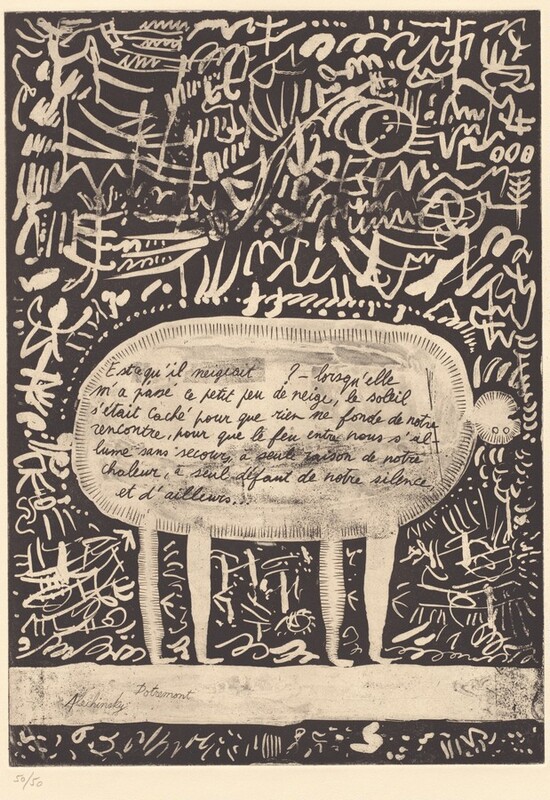 Est-ce qu'il neigeait ? – lorsqu'elle
m'a passé ce petit peu de neige, le soleil
s'était caché pour que rien ne fonde de notre
rencontre, pour que le feu entre nous s'al-
lume sans secours, à seule raison de notre
chaleur, à seul défaut de notre silence,
et d'ailleurs...
Dotremont
Alechinsky
50/50